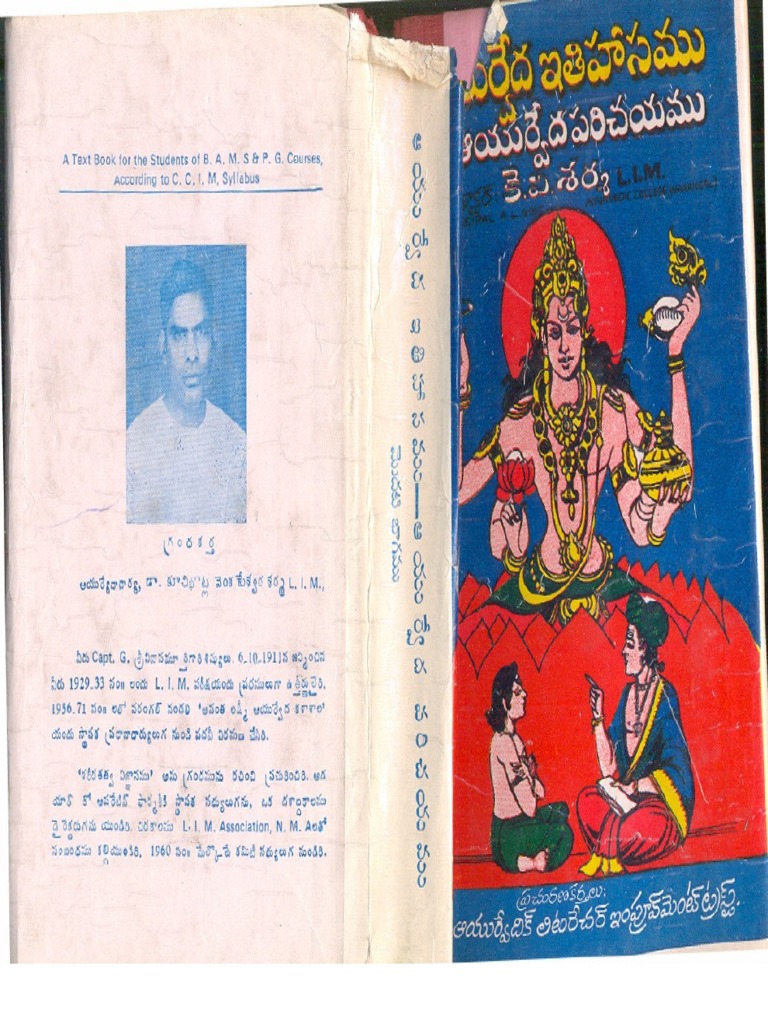 A Text Book for the Students of B. A. M. S & P. G. Courses,
According to C. C. I. M, Syllabus
గ్రంథకర్త
ఆయుర్వేదాచార్య, డా. కూచిభొట్ల వెంకటేశ్వర శర్మ L. I. M.,
వీరు Capt, G, శ్రీనివాసమూర్తిగారి శిష్యులు. 6-10-1911న జన్మించిన
వీరు 1929-33 సం॥ లందు L. I. M. పరీక్షయందు ప్రథములుగా ఉత్తీర్ణులైరి.
1956-71 సం॥ లలో వరంగల్ నందలి 'అనంత లక్ష్మీ ఆయుర్వేద కళాశాల'
యందు స్థాపక ప్రధానాచార్యులుగ నుండి పదవీ విరమణ చేసిరి.
'శరీరతత్వ విజ్ఞానము' అను గ్రంథమును రచించి ప్రచురించిరి.
కో ఆపరేటివ్ ఫార్మసీకి స్థాపక సభ్యులుగను, ఒక దశాబ్దకాలము
డైరెక్టరుగను యుండిరి. చిరకాలము L. I. M. Association, N. M. Aలతో
సంబంధము కల్గియుండిరి, 1960 సం॥ మేల్కోటే కమిటీ సభ్యులుగ నుండిరి.
ఆయుర్వేద ఇతిహాసము—ఆయుర్వేద పరిచయము
మొదటి భాగము
ర్వేద ఇతిహాసము
ఆయుర్వేద పరిచయము
కె.వి.శర్మ L.I.M.
ప్రచురణకర్తలు:
ఆయుర్వేదిక్ లిటరేచర్ ఇంప్రూవ్‌మెంట్ ట్రస్ట్.